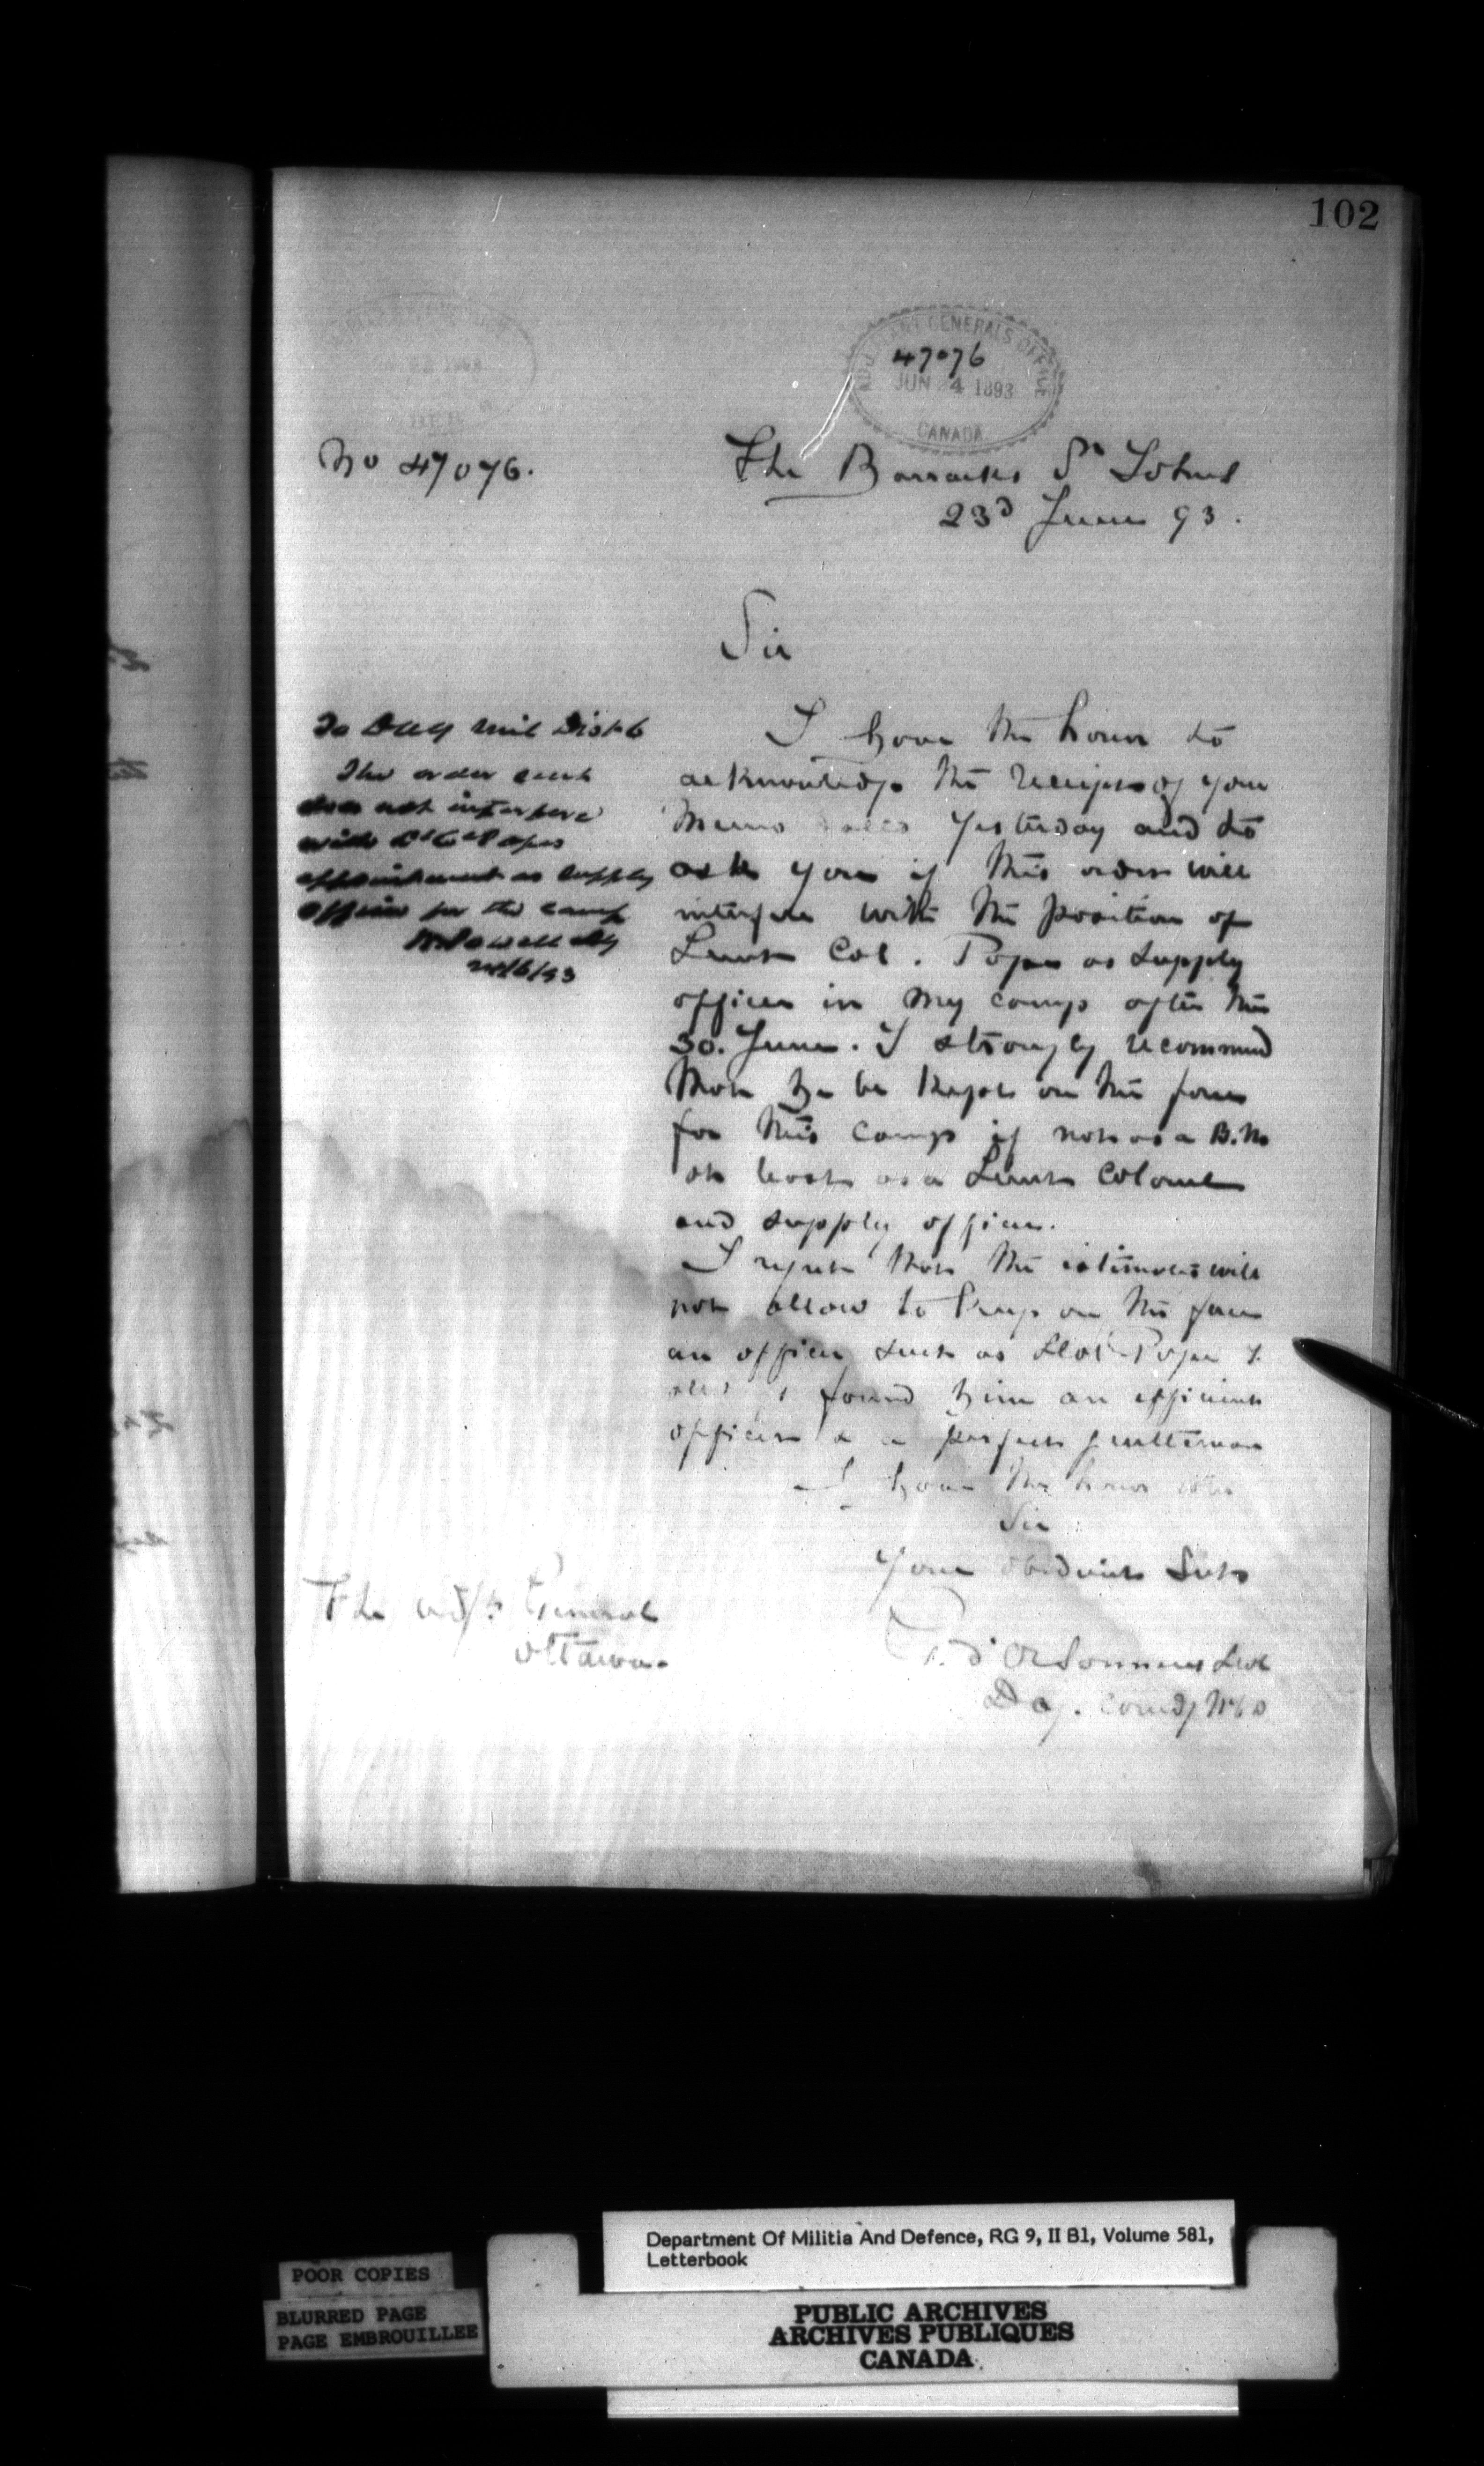 102
ADJUTANT GENERALS OFFICE
47076
JUN 24 1893
CANADA
No 47076.
The Barracks St Johns
23d June 93.
Sir
To DAG Mil Dist 6
The order
does not interfere
with Lt Col Popes
appointment as supply
officer for the camp
W Powell AG
/6/93
I have the honor to
acknowledge the receipt of your
memo yesterday and to
ask you if this order will
interfere with the position of
Lieut Col. Pope as supply
officer in my camp after the
30. June. I strongly recommend
that he be kept on the force
for this camp if not as a B.M
at least as a Lieut Colonel
and supply officer.
I regret that the estimates will
not allow to keep on the force
an officer such as Lt Col Pope I
found him an efficient
officer & a perfect gentleman
I have the honor
Sir
Your obedient Servt
The Adjt General
Ottawa.
d'Orsonnens Lt Col
Dag. Comdg No 6 D
Department Of Militia And Defence, RG 9, II B1, Volume 581,
Letterbook
POOR COPIES
BLURRED PAGE
PAGE EMBROUILLEE
PUBLIC ARCHIVES
ARCHIVES PUBLIQUES
CANADA